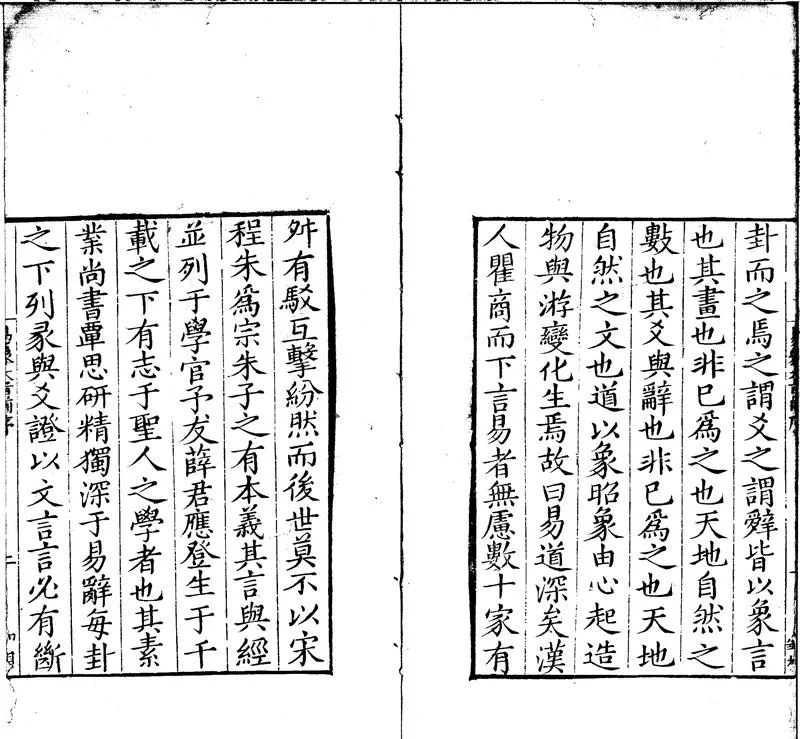 卦而之焉之謂爻之謂辤皆以象言
也其畫也非巳為之也天地自然之
數也其爻與辭也非巳為之也天地
自然之文也道以象昭象由心起造
物與游變化生焉故曰易道深矣漢
人瞿商而下言易者無慮數十家有
舛有駁互擊紛然而後世莫不以宋
程朱為宗朱子之有本義其言與經
並列于學官予友薛君應登生于千
載之下有志于聖人之學者也其素
業尚書覃思研精獨深于易辭每卦
之下列彖與爻證以文言言必有斷